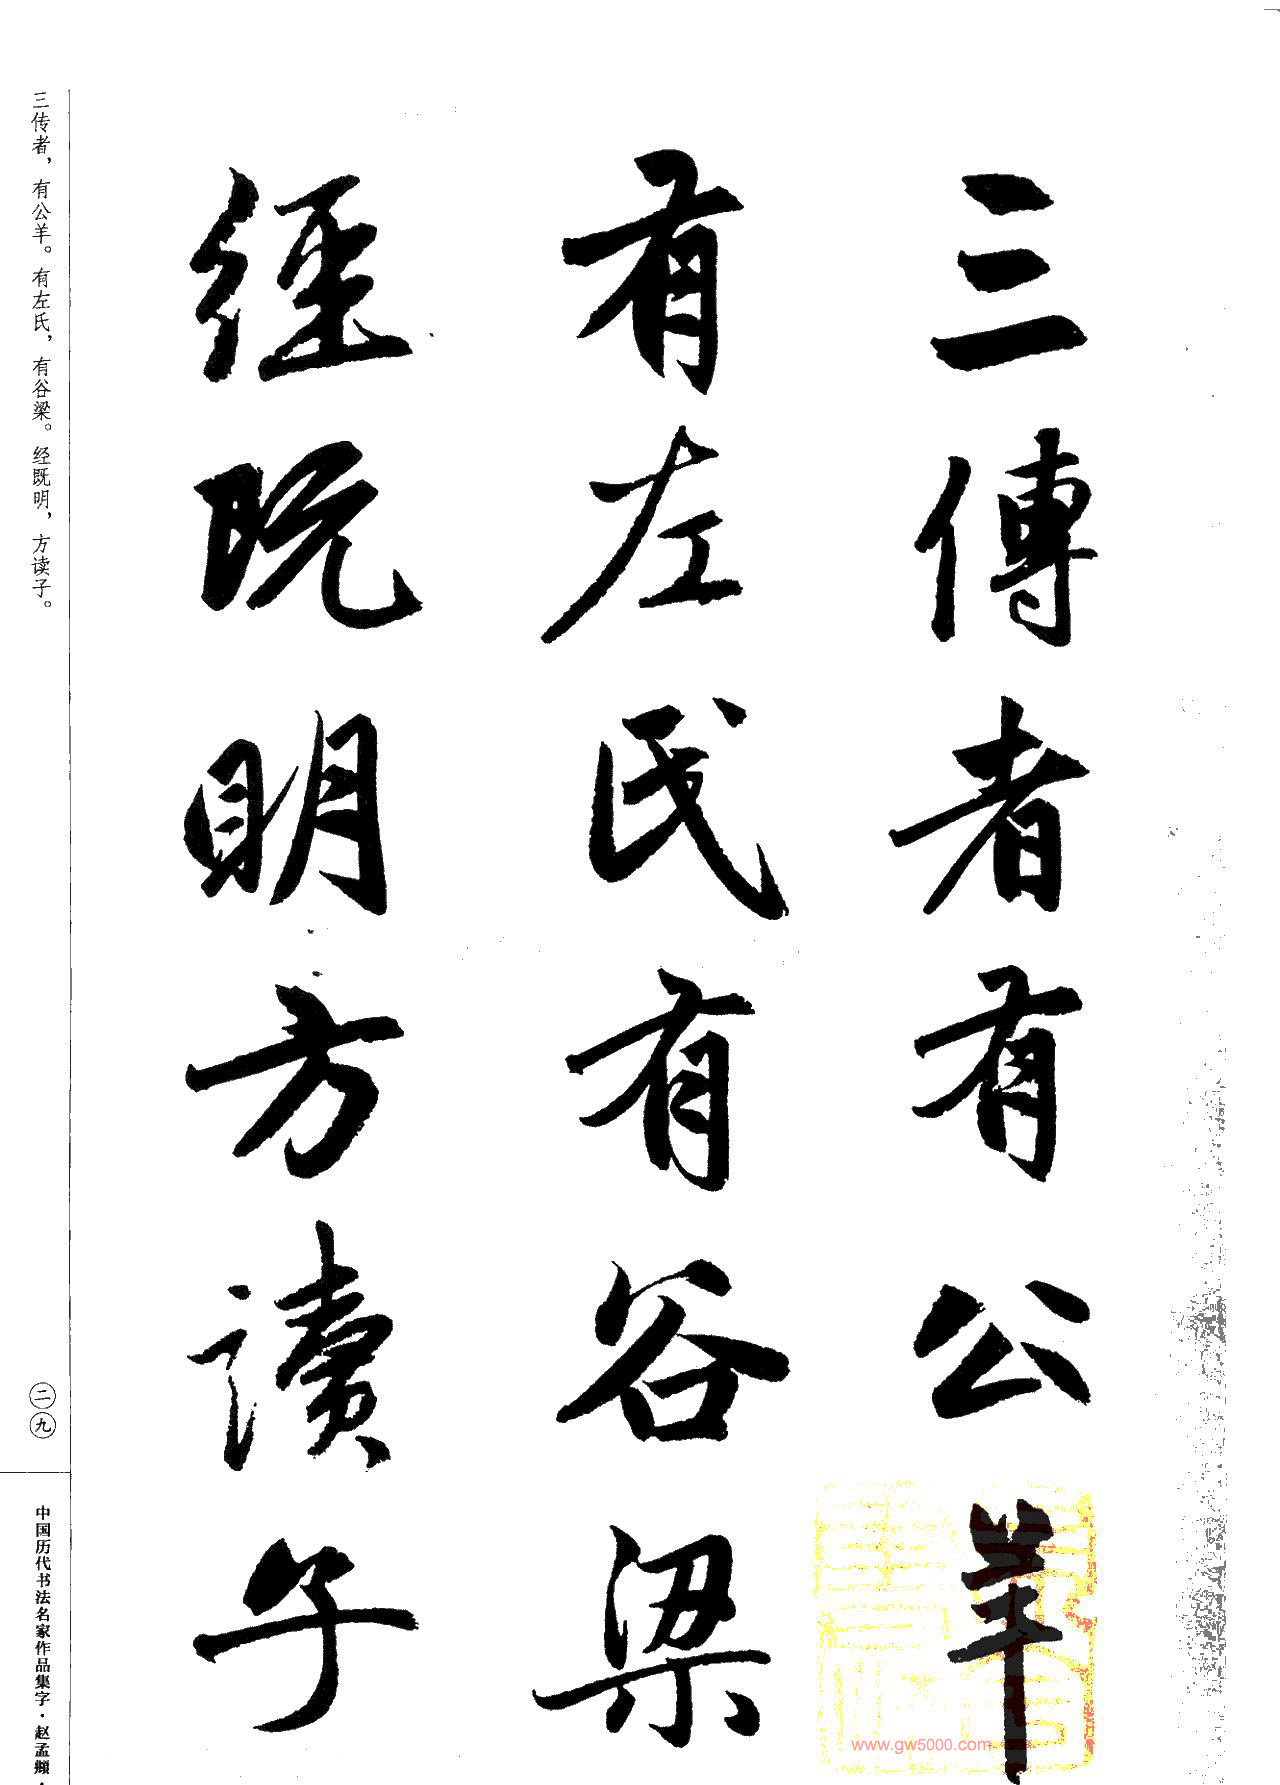 三傳者有公羊
有左氏有谷梁
經既明方讀子
三传者，有公羊。有左氏，有谷梁。经既明，方读子。
二九
中国历代书法名家作品集字·赵孟頫·
www.gw5000.com